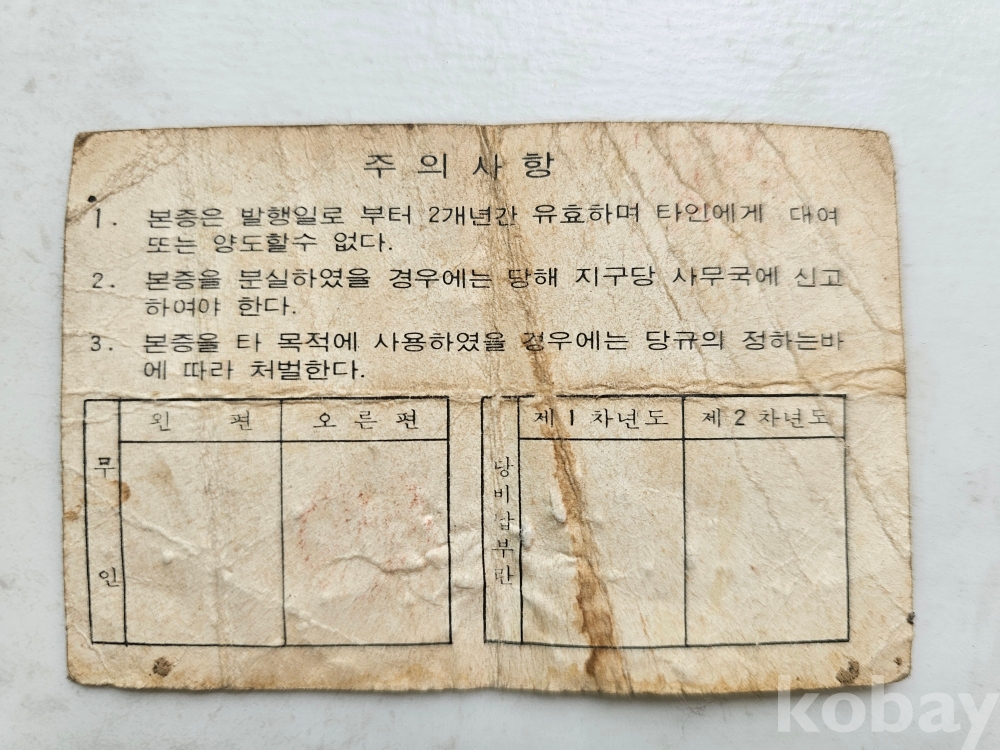 주의사항
1. 본증은 발행일로 부터 2개년간 유효하며 타인에게 대여
또는 양도할수 없다.
2. 본증을 분실하였을 경우에는 당해 지구당 사무국에 신고
하여야 한다.
3. 본증을 타 목적에 사용하였을 경우에는 당규의 정하는바
에 따라 처벌한다.
무인
왼편
오른편
당비납부란
제1차년도
제2차년도
kobay